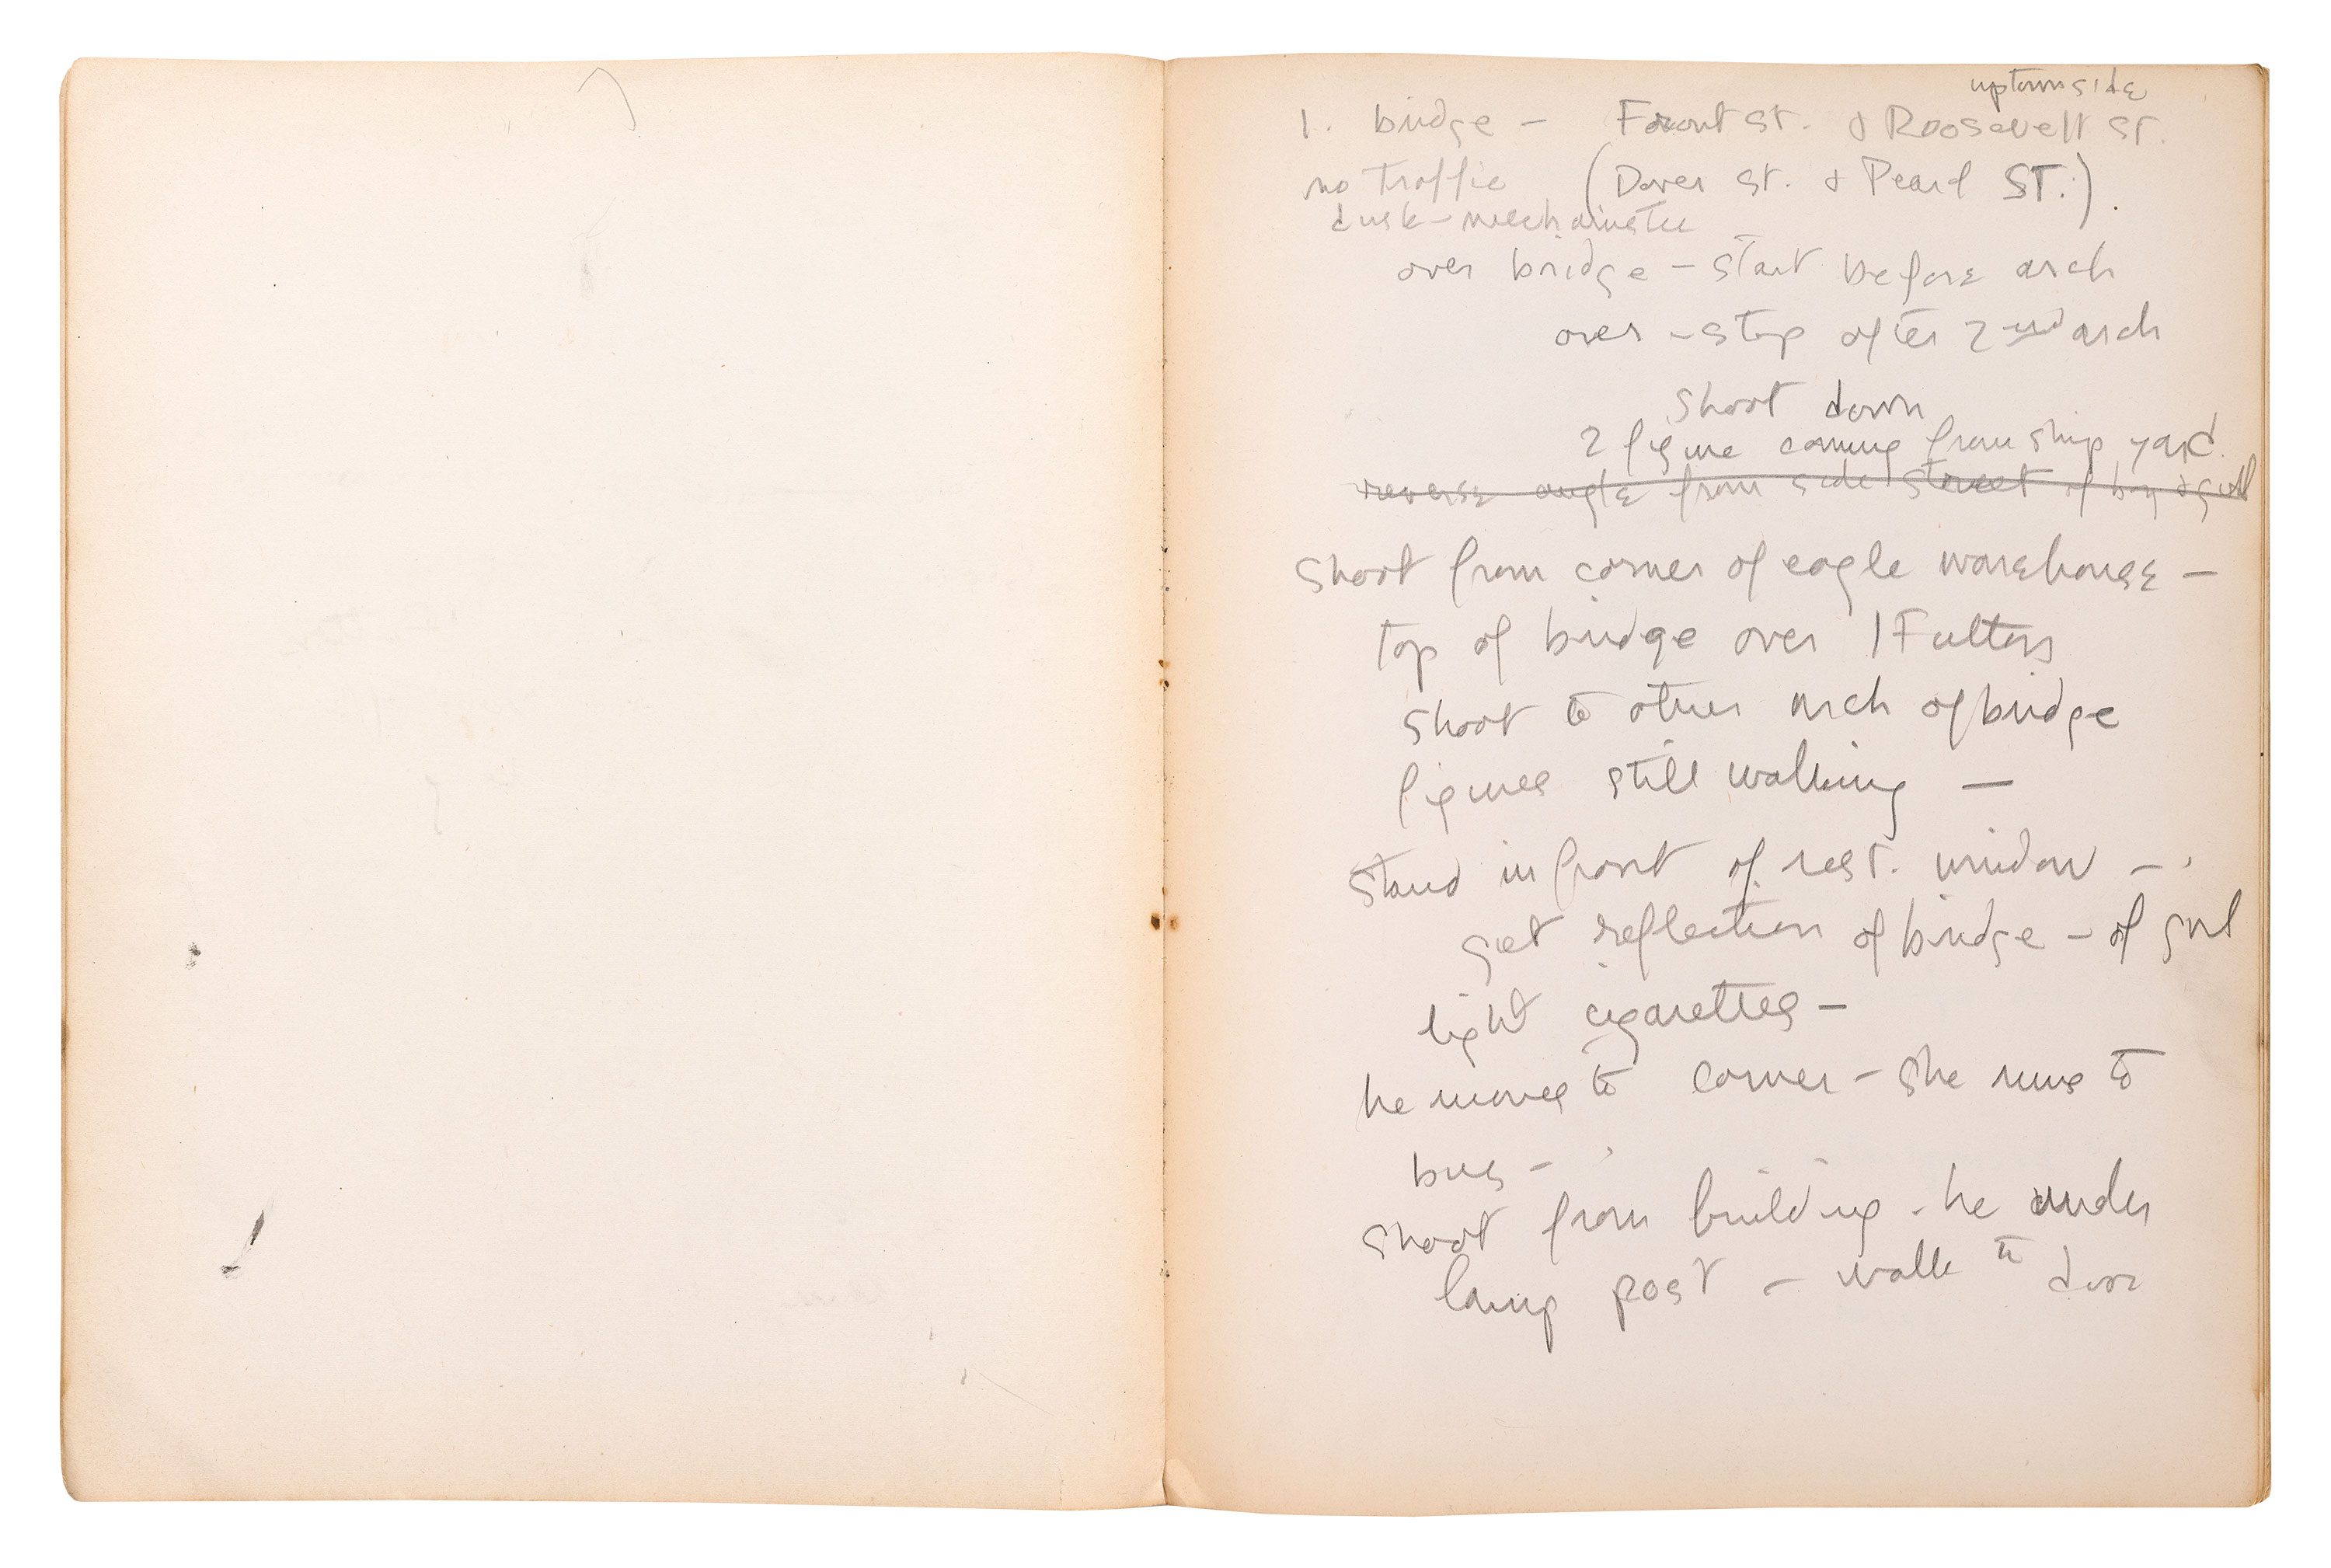 uptown side
1. bridge – Front St. & Roosevelt St.
no traffic (Dover St. & Pearl ST.).
dusk –
over bridge – start before arch
over – stop after 2nd arch
Shoot down
2 figure coming from ship yard.
reverse angle from side street of boy & girl
Shoot from corner of eagle warehouse –
top of bridge over 1 Fulton
Shoot to other arch of bridge
figures still walking –
stand in front of rest. window –
get reflection of bridge – of girl
light cigarettes –
he moves to corner – She runs to
bus –
Shoot from building - he under
lamp post – walk to door